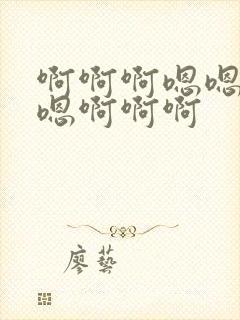 啊啊啊嗯嗯
嗯啊啊啊
廖藝